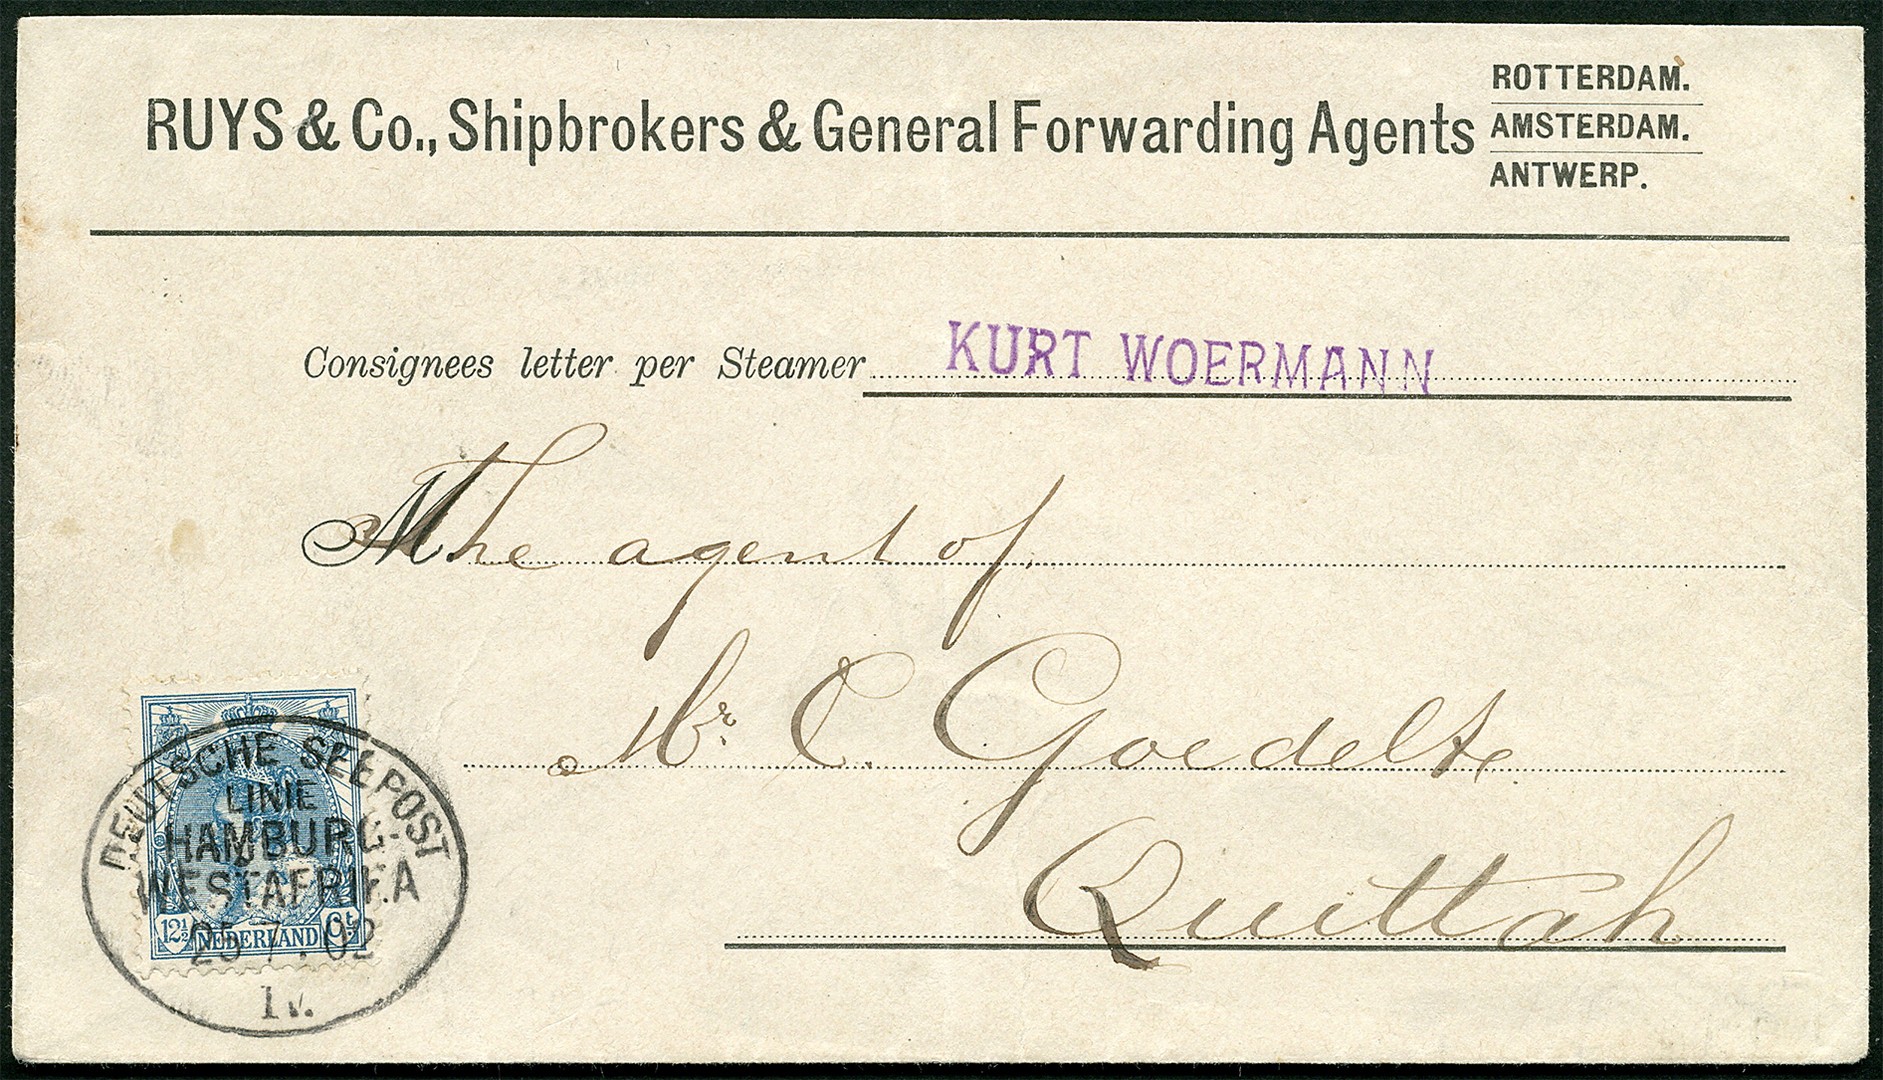 RUYS & Co., Shipbrokers & General Forwarding Agents
ROTTERDAM.
AMSTERDAM.
ANTWERP.
Consignees letter per Steamer KURT WOERMANN
M The agent of
Mr. C. Goedelte
Quittah
DEUTSCHE SEEPOST
LINIE
HAMBURG-
WESTAFRIKA
25 7 02
IV.
12½ NEDERLAND Ct